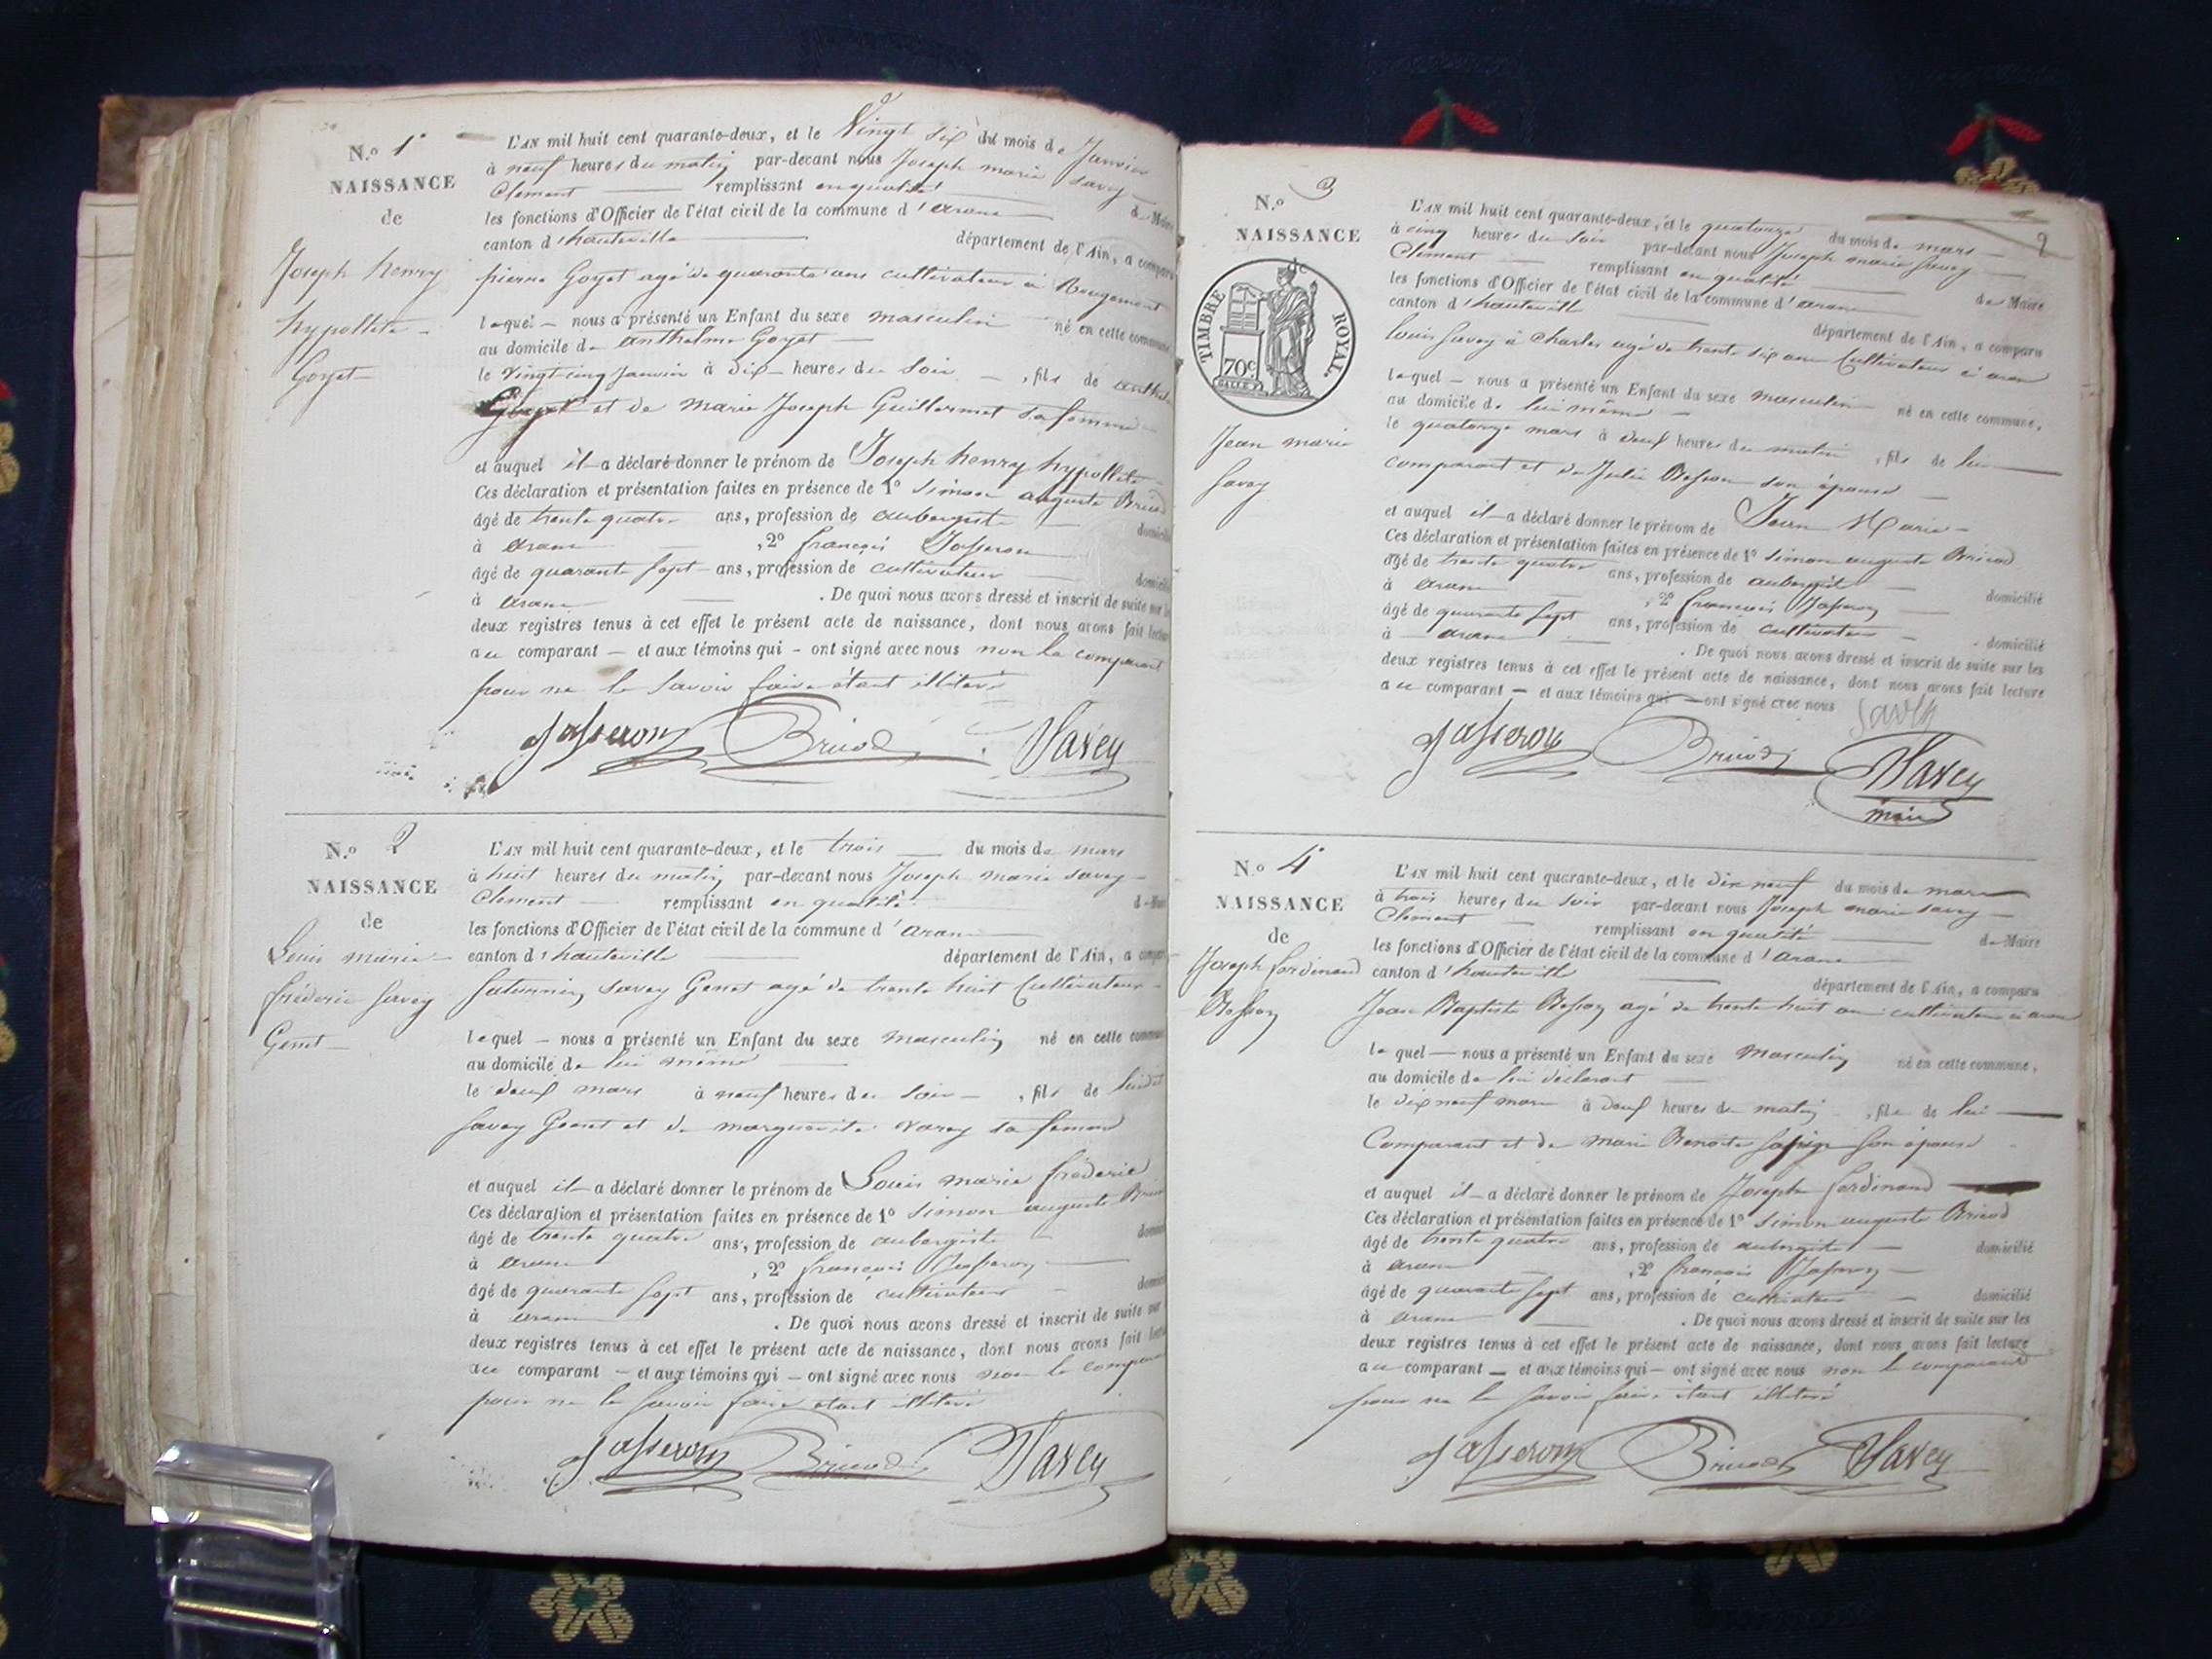 N.º 1er
NAISSANCE
de
Joseph henry
hypollite
Goyet
L'AN mil huit cent quarante-deux, et le Vingt six du mois de Janvier
à neuf heures du matin par-devant nous Joseph marie Savey
Clement remplissant en qualité de Maire
les fonctions d'Officier de l'état civil de la commune d'aranc
canton d'hauteville département de l'Ain, a comparu
pierre Goyet agé de quarante ans cultivateur à Rougemont
lequel nous a présenté un Enfant du sexe masculin né en cette commune
au domicile de anthelme Goyet
le vingt cinq Janvier à dix heures du soir, fils de anthelme
Goyet et de marie Joseph Guillermet sa femme
et auquel il a déclaré donner le prénom de Joseph henry hypollite
Ces déclaration et présentation faites en présence de 1º Simon auguste Bricod
âgé de trente quatre ans, profession de aubergiste domicilié
à aranc, 2º françois Jasseron
âgé de quarante sept ans, profession de cultivateur domicilié
à aranc. De quoi nous avons dressé et inscrit de suite sur les
deux registres tenus à cet effet le présent acte de naissance, dont nous avons fait lecture
au comparant — et aux témoins qui - ont signé avec nous non le comparant
pour ne le savoir faire étant illiteré
Jasseron Bricod Savey
N.º 2
NAISSANCE
de
Louis marie
fréderic Savey
Genet
L'AN mil huit cent quarante-deux, et le trois du mois de mars
à huit heures du matin par-devant nous Joseph marie Savey
Clement remplissant en qualité de Maire
les fonctions d'Officier de l'état civil de la commune d'aranc
canton d'hauteville département de l'Ain, a comparu
Saturnin Savey Genet agé de trente huit Cultivateur
lequel — nous a présenté un Enfant du sexe masculin né en cette commune
au domicile de lui même
le deux mars à neuf heures du soir, fils de luidit
Savey Genet et de marguerite Varey sa femme
et auquel il a déclaré donner le prénom de Louis marie fréderic
Ces déclaration et présentation faites en présence de 1º Simon auguste Bricod
âgé de trente quatre ans, profession de aubergiste domicilié
à aranc, 2º françois Jasseron
âgé de quarante sept ans, profession de cultivateur domicilié
à aranc. De quoi nous avons dressé et inscrit de suite sur
deux registres tenus à cet effet le présent acte de naissance, dont nous avons fait lecture
au comparant — et aux témoins qui — ont signé avec nous non le comparant
pour ne le savoir faire étant illiteré
Jasseron Bricod Savey
2
N.º 3
NAISSANCE
TIMBRE ROYAL.
70c
Jean marie
Savey
L'AN mil huit cent quarante-deux, et le quatorze du mois de mars
à cinq heures du soir par-devant nous Joseph marie Savey
Clement remplissant en qualité de Maire
les fonctions d'Officier de l'état civil de la commune d'aranc
canton d'hauteville département de l'Ain, a comparu
Louis Savey à Charles agé de trente six ans Cultivateur à aranc
lequel — nous a présenté un Enfant du sexe masculin né en cette commune,
au domicile de lui même
le quatorze mars à deux heures du matin, fils de lui
comparant et de Julie Besson son épouse
et auquel il a déclaré donner le prénom de Jean Marie
Ces déclaration et présentation faites en présence de 1º Simon auguste Bricod
âgé de trente quatre ans, profession de aubergiste domicilié
à aranc, 2º françois Jasseron
âgé de quarante sept ans, profession de cultivateur domicilié
à aranc. De quoi nous avons dressé et inscrit de suite sur les
deux registres tenus à cet effet le présent acte de naissance, dont nous avons fait lecture
au comparant — et aux témoins qui — ont signé avec nous Savey
Jasseron Bricod Savey
maire
N.º 4
NAISSANCE
de
Joseph ferdinand
Besson
L'AN mil huit cent quarante-deux, et le dix neuf du mois de mars
à trois heures du soir par-devant nous Joseph marie Savey
Clement remplissant en qualité de Maire
les fonctions d'Officier de l'état civil de la commune d'aranc
canton d'hauteville département de l'Ain, a comparu
Jean Baptiste Besson agé de trente huit ans cultivateur à aranc
lequel — nous a présenté un Enfant du sexe Masculin né en cette commune,
au domicile de lui déclarant
le dix neuf mars à deux heures du matin, fils de lui
Comparant et de Marie Benoite son épouse
et auquel il a déclaré donner le prénom de Joseph ferdinand
Ces déclaration et présentation faites en présence de 1º Simon auguste Bricod
âgé de trente quatre ans, profession de aubergiste domicilié
à aranc, 2º françois Jasseron
âgé de quarante sept ans, profession de cultivateur domicilié
à aranc. De quoi nous avons dressé et inscrit de suite sur les
deux registres tenus à cet effet le présent acte de naissance, dont nous avons fait lecture
au comparant — et aux témoins qui — ont signé avec nous non le comparant
pour ne le savoir faire étant illiteré
Jasseron Bricod Savey